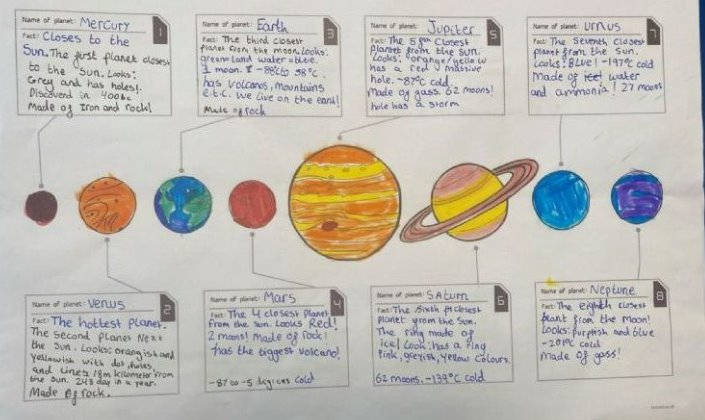 Name of planet: Mercury
1
Fact: Closes to the
Sun. The first planet closest
to the Sun. Looks:
Grey and has holes!.
Discoverd in 400bc
Made of Iron and rock!
Name of planet: Earth
3
Fact: The third closest
planet from the moon. Looks:
green land water = blue.
1 moon. -88°C to 58°C.
has volcanos, mountains
e.t.c. we live on the earth!
Made of rock
Name of planet: Jupiter
5
Fact: The 5th Closest
Planet from the Sun.
Looks: orange/yellow
has a red massive
hole. -87°C cold
Made of gass. 62 moons!
hole has a storm
Name of planet: Urnus
7
Fact: The Seventh closest
planet from the Sun.
Looks: Blue! -197°C cold
Made of water
and ammonia! 27 moons
Name of planet: Venus
2
Fact: The hottest planet.
The second Planet Next
the Sun. Looks: orangish and
yellowish with dot, holes,
and lines from
the Sun. 243 day in a year.
Made of rock.
Name of planet: Mars
4
Fact: The 4 closest Planet
from the sun. Looks Red!
2 moons! Made of rock!
has the biggest volcano!
-87 to -5 degrees cold
Name of planet: Saturn
6
Fact: The sixth closest
planet from the Sun.
The ring made of
ice! Look: has a ring
Pink, greyish, Yellow colours.
62 moons. -139°C cold
Name of planet: Neptune
8
Fact: The eighth closest
plant from the Moon!
Looks: purplish and blue
-201°C cold
made of gass!